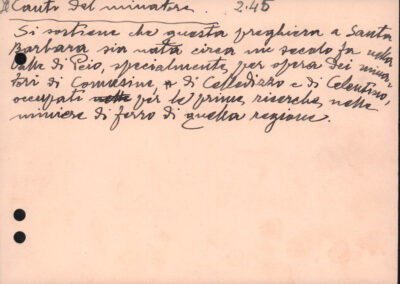 Il Canto del minatore. 2.45
Si sostiene che questa preghiera a Santa
Barbara sia nata circa un secolo fa nella
Valle di Peio, specialmente per opera dei mina-
tori di Comasine, e di Celledizzo e di Celentino,
occupati nelle per le prime ricerche nelle
miniere di ferro di quella regione.